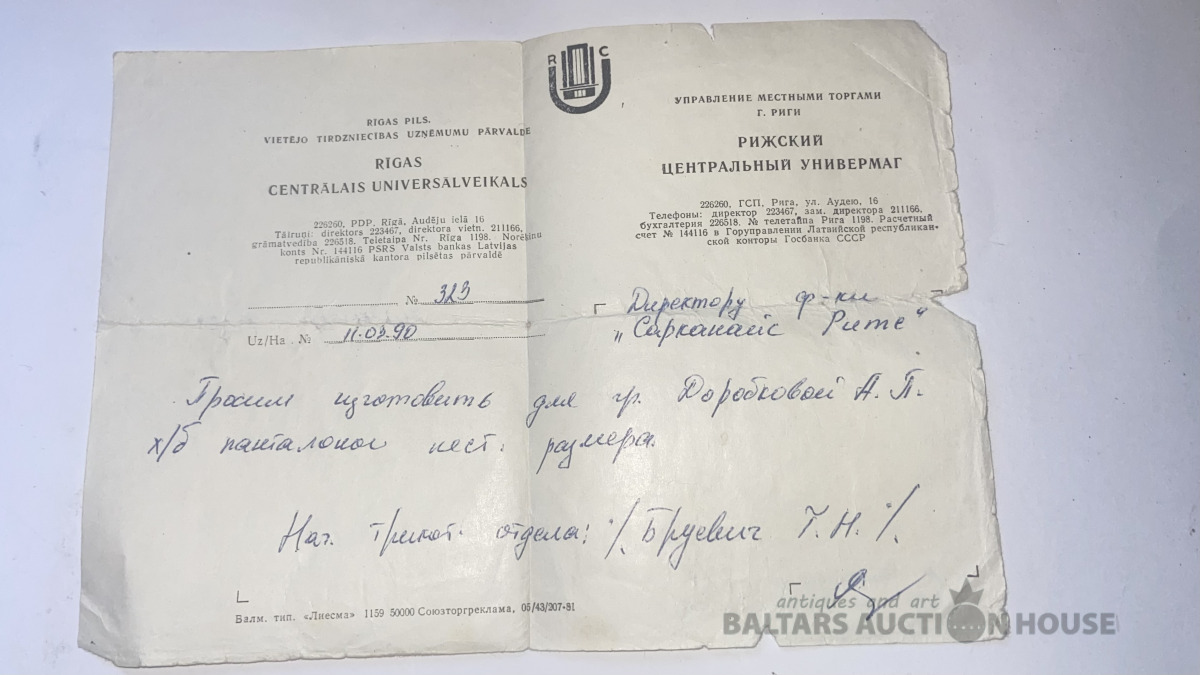 R C
RĪGAS PILS.
VIETĒJO TIRDZNIECĪBAS UZŅĒMUMU PĀRVALDE
RĪGAS
CENTRĀLAIS UNIVERSĀLVEIKALS
226260, PDP, Rīgā, Audēju ielā 16
Tālruņi: direktors 223467, direktora vietn. 211166,
grāmatvedība 226518. Teletaipa Nr. Rīga 1198. Norēķinu
konts Nr. 144116 PSRS Valsts bankas Latvijas
republikāniskā kantora pilsētas pārvaldē
УПРАВЛЕНИЕ МЕСТНЫМИ ТОРГАМИ
Г. РИГИ
РИЖСКИЙ
ЦЕНТРАЛЬНЫЙ УНИВЕРМАГ
226260, ГСП, Рига, ул. Аудею, 16
Телефоны: директор 223467, зам. директора 211166,
бухгалтерия 226518, № телетайпа Рига 1198. Расчетный
счет № 144116 в Горуправлении Латвийской республикан-
ской конторы Госбанка СССР
№ 323
Uz/На . № 11.03.90
Директору ф-ки
„Сарканайс Рите"
Просим изготовить для гр. Доробковой А. П.
х/б панталоны нест. размера.
Нач. трикот. отдела: /. Бруевич Т. Н. /.
Валм. тип. «Лиесма» 1159 50000 Союзторгреклама, 06/43/207-81
antiques and art
BALTARS AUCTION HOUSE